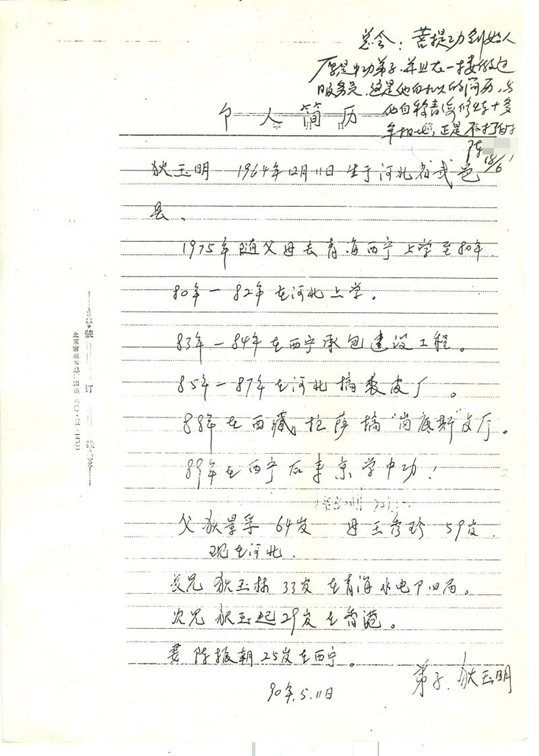 总会：菩提功创始人
原是中功弟子，并且在一楼做过
服务员，这是他自书的简历，与
他自称青海修炼十多
年
陈
个人简历
狄玉明 1964年12月11日生于河北省武邑
县。
1975年随父母去青海西宁上学至80年
80年—82年在河北上学。
83年—84年在西宁承包建设工程。
85年—87年在河北搞裘皮厂。
88年在西藏拉萨搞“岗底斯”文厅。
89年在西宁后来京学中功！
父狄景孚 64岁 母王秀珍 59岁
现在河北
长兄 狄玉栋 33岁 在青海水电厂四局。
次兄 狄玉起 29岁 在香港。
妻 陈振朝 25岁在西宁。
弟子：狄玉明
90年.5.11日
装
订
线